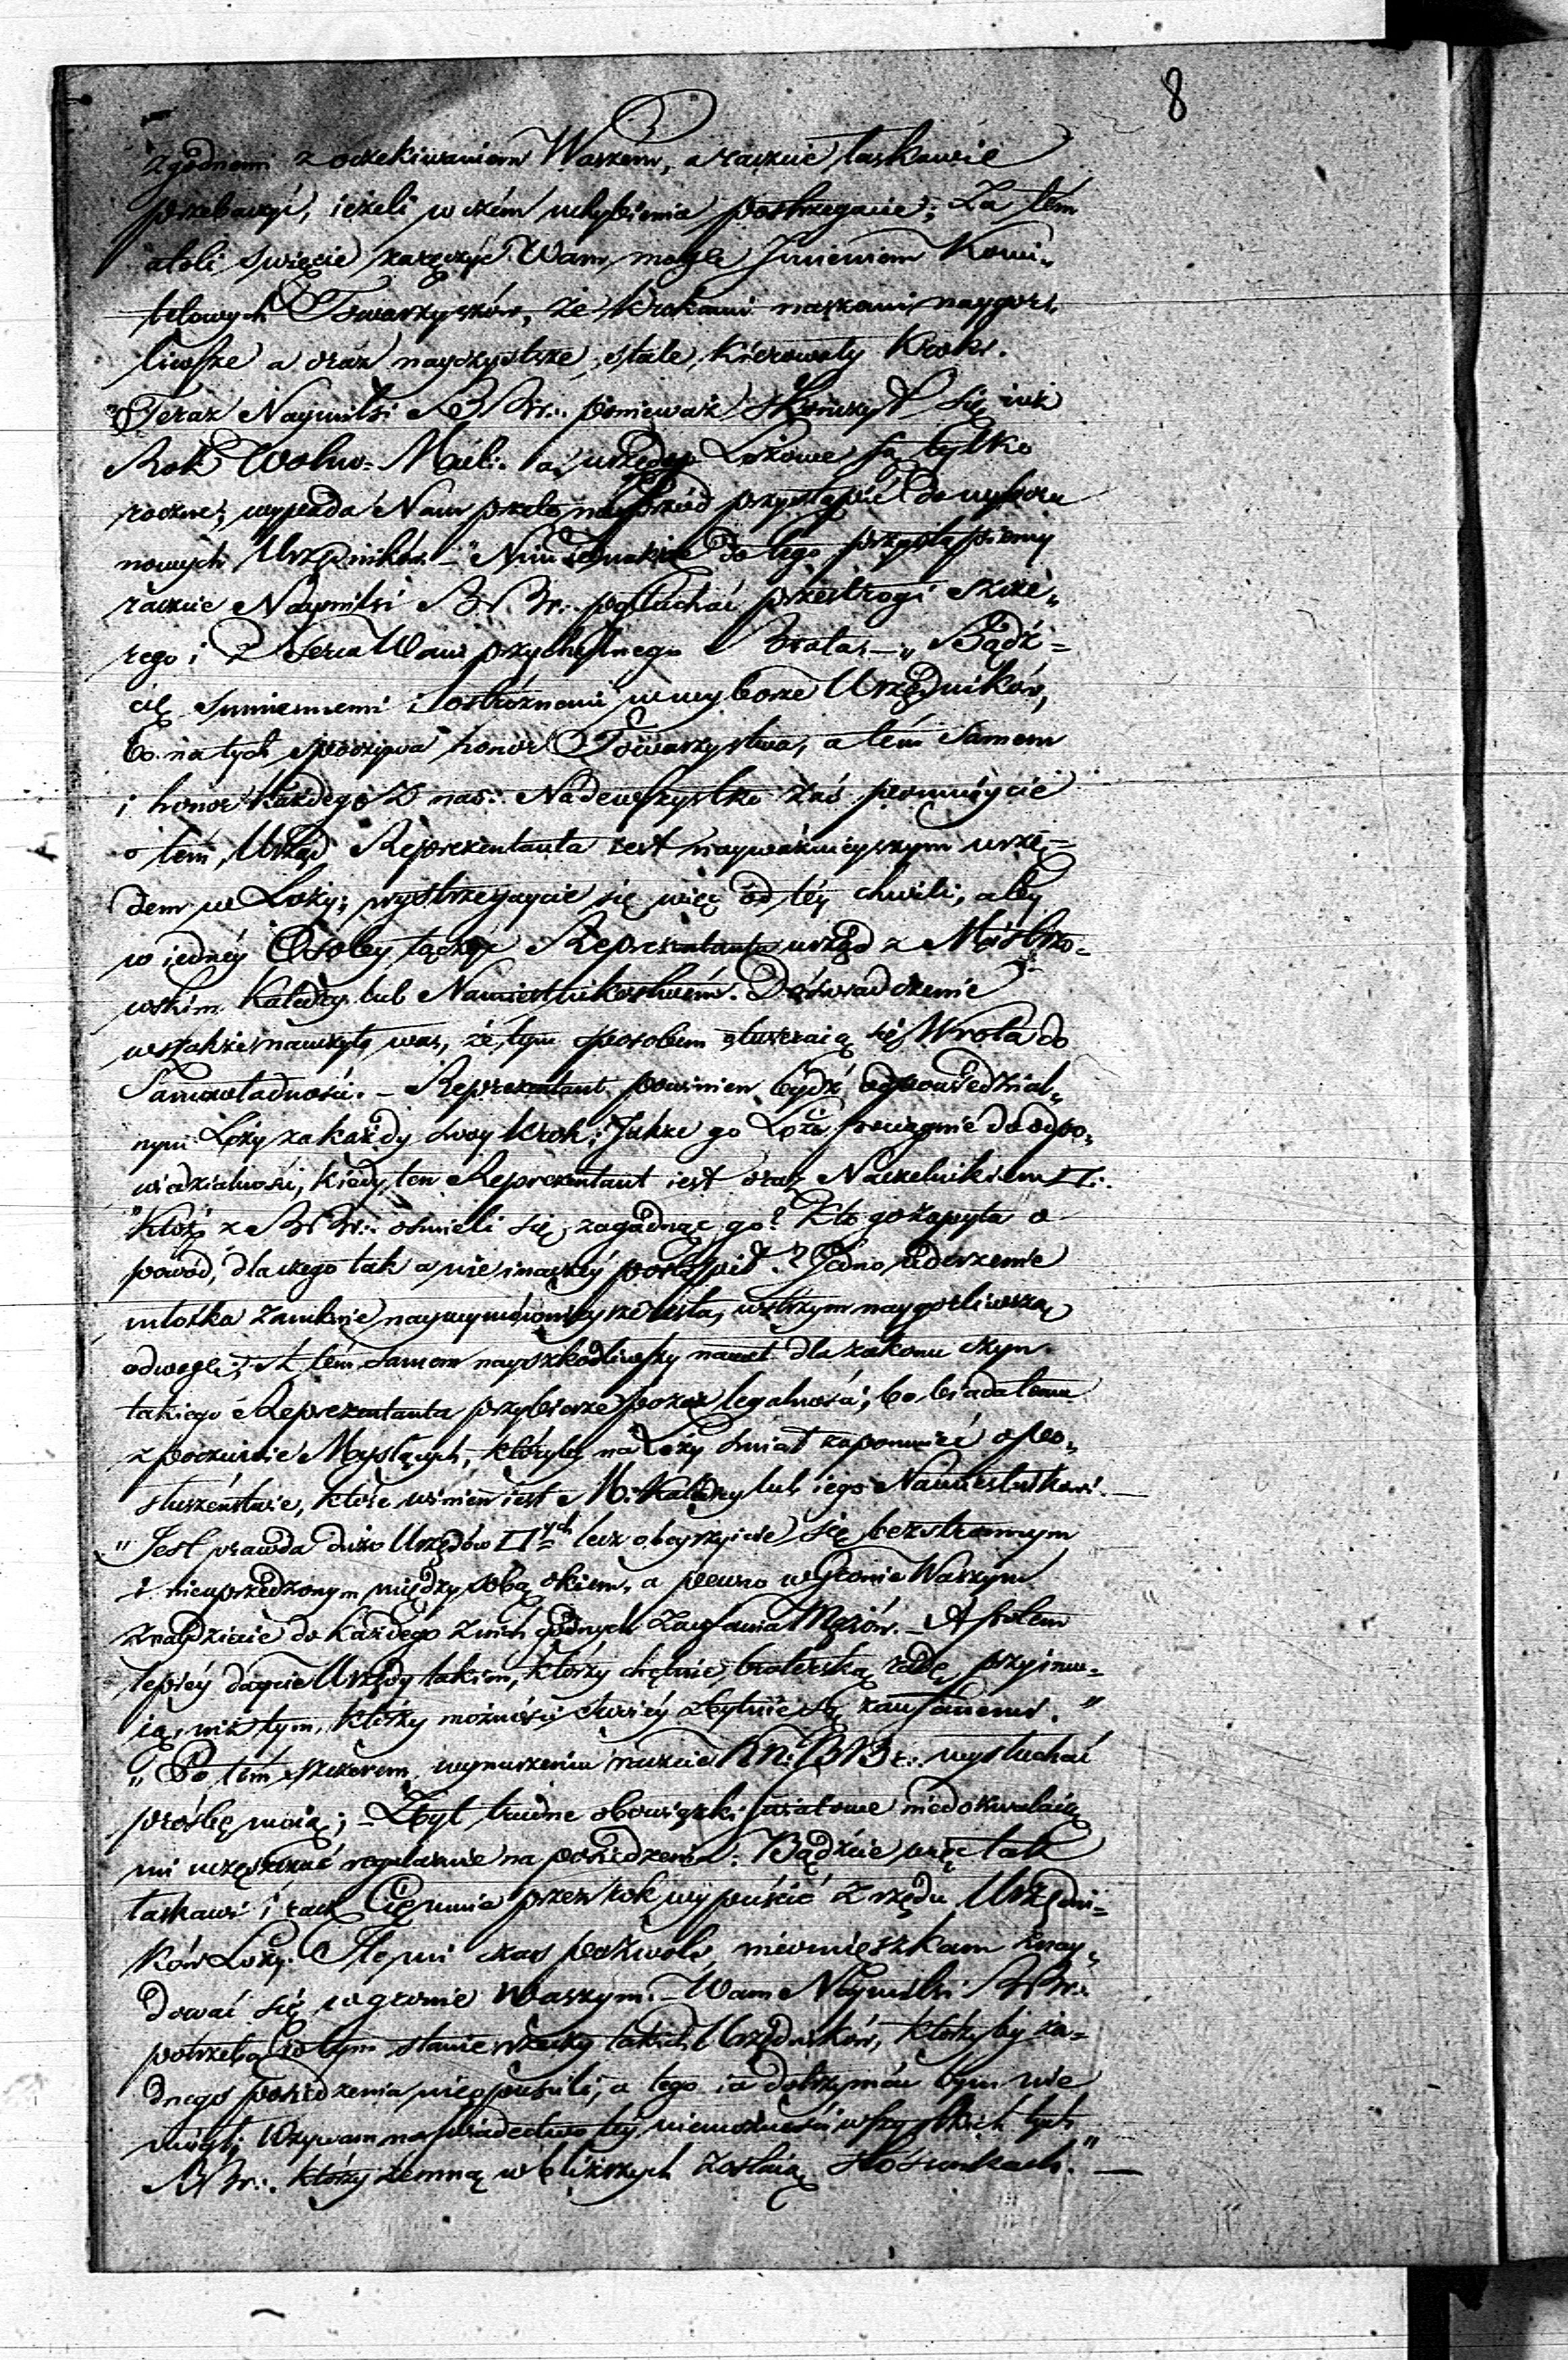 8
zgodnemi z oczekiwaniem Waszem, a raczcie łaskawie
przebaczyć, ieżeli w czém uchybienia postrzegacie; Za tém
atoli święcie zaręczyć Wam mogę Jmieniem Komi„
tetowych Towarzyszów, że krokami naszemi naygor„
liwsze a oraz nayczystsze, stale, kierowały kroki.
"Teraz Naymilsi BBr∴ ponieważ skończył się iuż
Rok Wolno-Mul: a urzędy Lożowe są tylko
roczne; wypada Nam przeto naprzód przystąpić do wyboru
nowych Urzędników – "Nim iednakże do tego przystąpiemy
raczcie Naymilsi BBr∴ posłuchać przestrogi szcze„
rego i z serca Wam przychylnego Brata. – „Bądź=
cie sumiennemi i ostróżnemi w wyborze Urzędników,
bo na tych spoczywa honor Towarzystwa, a tém samem
i honor każdego z nas. Nadewszystko zaś pomniycie
o tém, Urząd Reprezentanta iest nayważnieyszym urzę=
dem w Loży; wystrzegaycie się więc od téy chwili, aby
w iednéy Osobie łączyć Reprezentanta urząd z Mistrzo-
wskim Katedry lub Namiestnikostwem. Doświadczenie
wszakże nauczyło was, że tym sposobem otwieraią się Wrota do
Samowładności. – Reprezentant powinien bydź odpowiedzial„
nym Loży za każdy swoy krok; Jakże go Loża pociągnie do odpo„
wiedzialności, kiedy ten Reprezentant iest oraz Naczelnikiem □∴
"Któż z BBr∴ ośmieli się zagadnąć go? Kto go zapyta o
powód, dlaczego tak a nie inaczéy postąpił.? Jedno uderzenie
młotka zamknie naywymównieysze usta, wstrzyma naygorliwszą
odwagę; A tém samem nayszkodliwszy nawet dla zakonu czyn
takiego Reprezentanta przybierze pozór legalności; bo biada temu
z poczciwie Myślących, któryby na Loży śmiał zapomnieć o po„
słuszeństwie, które winien iest M: Katedry lub iego Namiestnikowi. –
"Jest prawda dużo Urzędów □ych lecz obeyrzyicie się bezstronnym
i nieuprzedzonym między sobą okiem, a pewno w gronie Waszym
znaydziecie do każdego z nich godnych zaufania Mężów. – A potem
lepiéy daycie Urzędy takim, którzy chętnie braterską radę przyimu=
ią, niż tym, którzy możności swoiéy zbytnie są zaufanemi."
„Po tém szczerem wynurzeniu raczcie NN: BBr∴ wysłuchać
prośbę moią; – Zbyt trudne obowiązki światowe niedozwalaią
mi uczęszczać regularnie na posiedzenia: Bądźcie więc tak
łaskawi i raczcie mnie przez rok wypuścić z rzędu Urzędni=
ków Loży. Ile mi czas pozwoli, nieomieszkam znay„
dować się w gronie Waszym. – Wam Naymilsi BBr∴
potrzeba w tym stanie rzeczy takich Urzędników, którzyby ża=
dnego posiedzenia nieopuścili, a tego ia dotrzymać bym nie
mógł; Wzywam na świadectwo téy niemożności wszystkich tych
BBr∴ którzy zemną w bliższych zostaią stosunkach." –